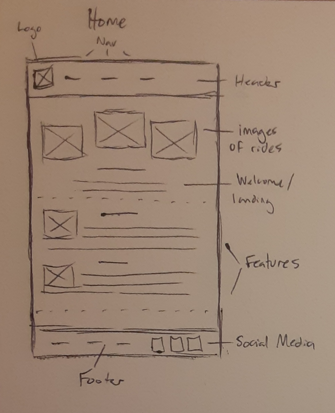 Home
Logo
Nav
Header
images
of rides
Welcome/
landing
Features
Social Media
Footer